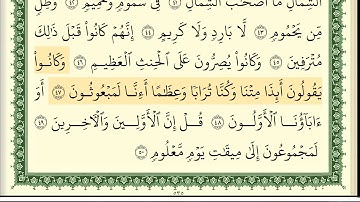 ٱلشِّمَالِ مَآ أَصْحَٰبُ ٱلشِّمَالِ ٤١ فِى سَمُومٍ وَحَمِيمٍ ٤٢ وَظِلٍّ
مِّن يَحْمُومٍ ٤٣ لَّا بَارِدٍ وَلَا كَرِيمٍ ٤٤ إِنَّهُمْ كَانُوا۟ قَبْلَ ذَٰلِكَ
مُتْرَفِينَ ٤٥ وَكَانُوا۟ يُصِرُّونَ عَلَى ٱلْحِنثِ ٱلْعَظِيمِ ٤٦ وَكَانُوا۟
يَقُولُونَ أَئِذَا مِتْنَا وَكُنَّا تُرَابًا وَعِظَٰمًا أَءِنَّا لَمَبْعُوثُونَ ٤٧ أَوَ
ءَابَآؤُنَا ٱلْأَوَّلُونَ ٤٨ قُلْ إِنَّ ٱلْأَوَّلِينَ وَٱلْءَاخِرِينَ ٤٩
لَمَجْمُوعُونَ إِلَىٰ مِيقَٰتِ يَوْمٍ مَّعْلُومٍ ٥٠
٥٣٥